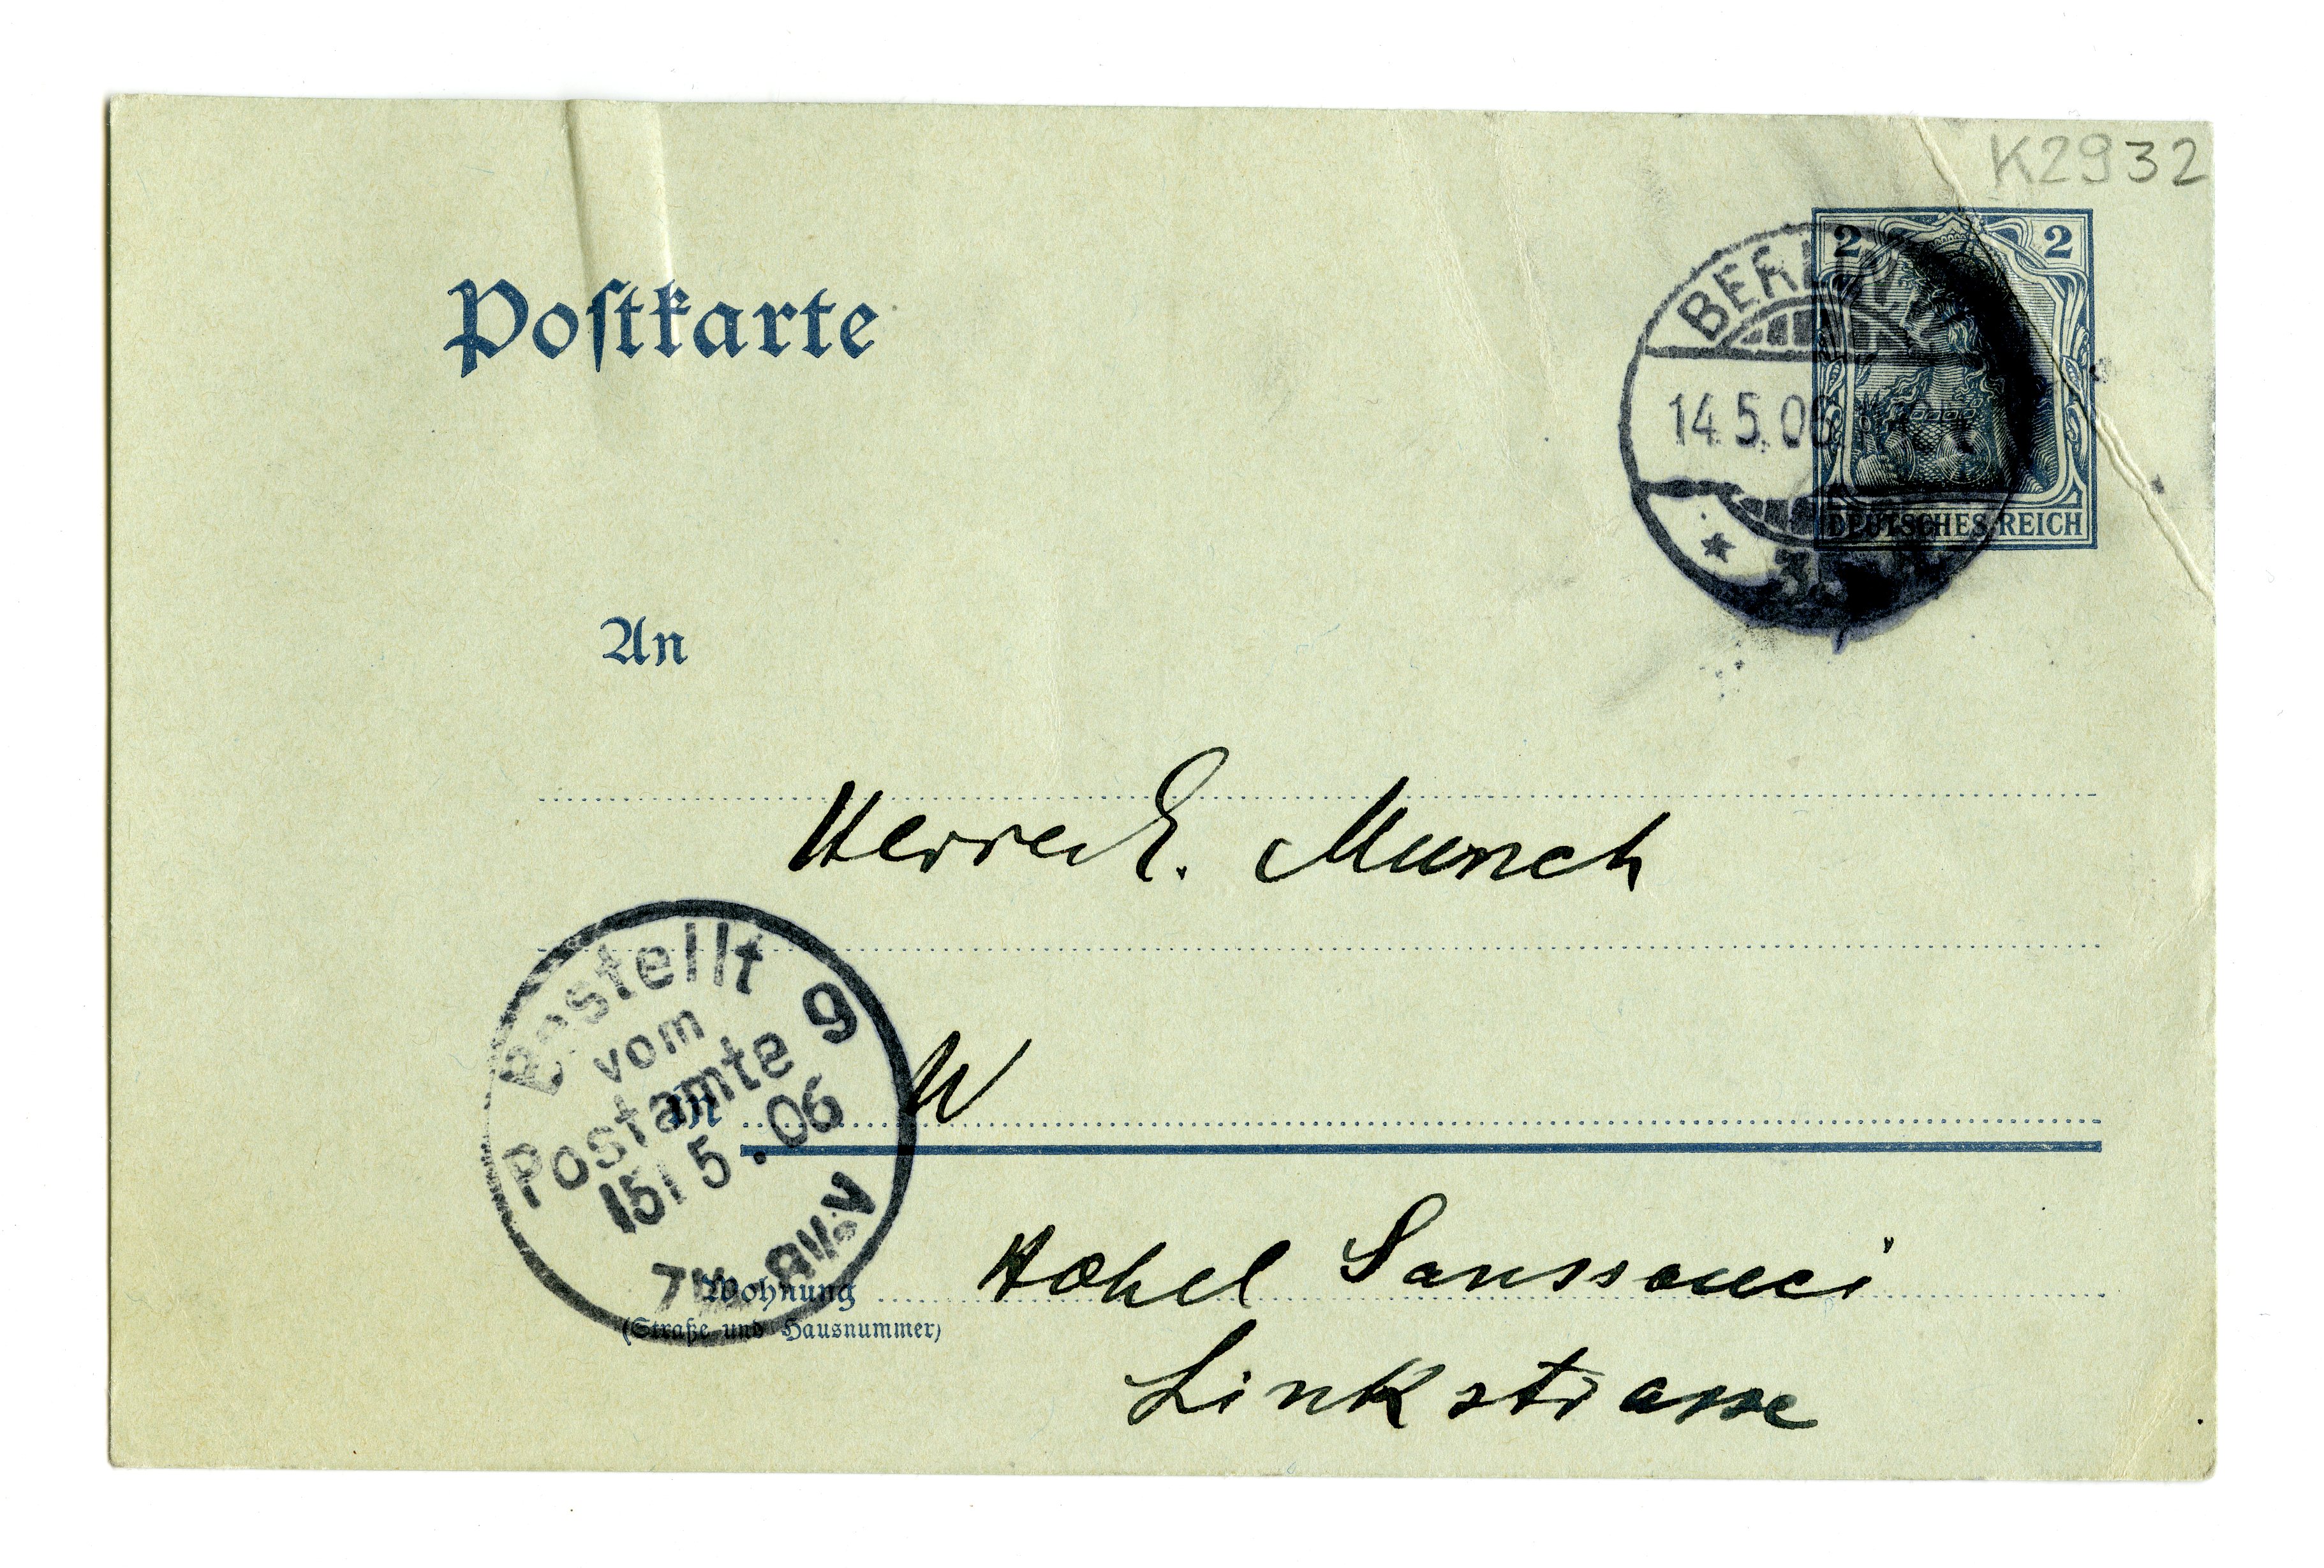 K2932
Postkarte
2 2
BERLIN
14.5.06
DEUTSCHES REICH
An
Herrn E. Munch
Bestellt
vom
Postamte 9
15 5.06
in W
Wohnung Hotel Sanssouci
(Straße und Hausnummer)
Linkstrasse